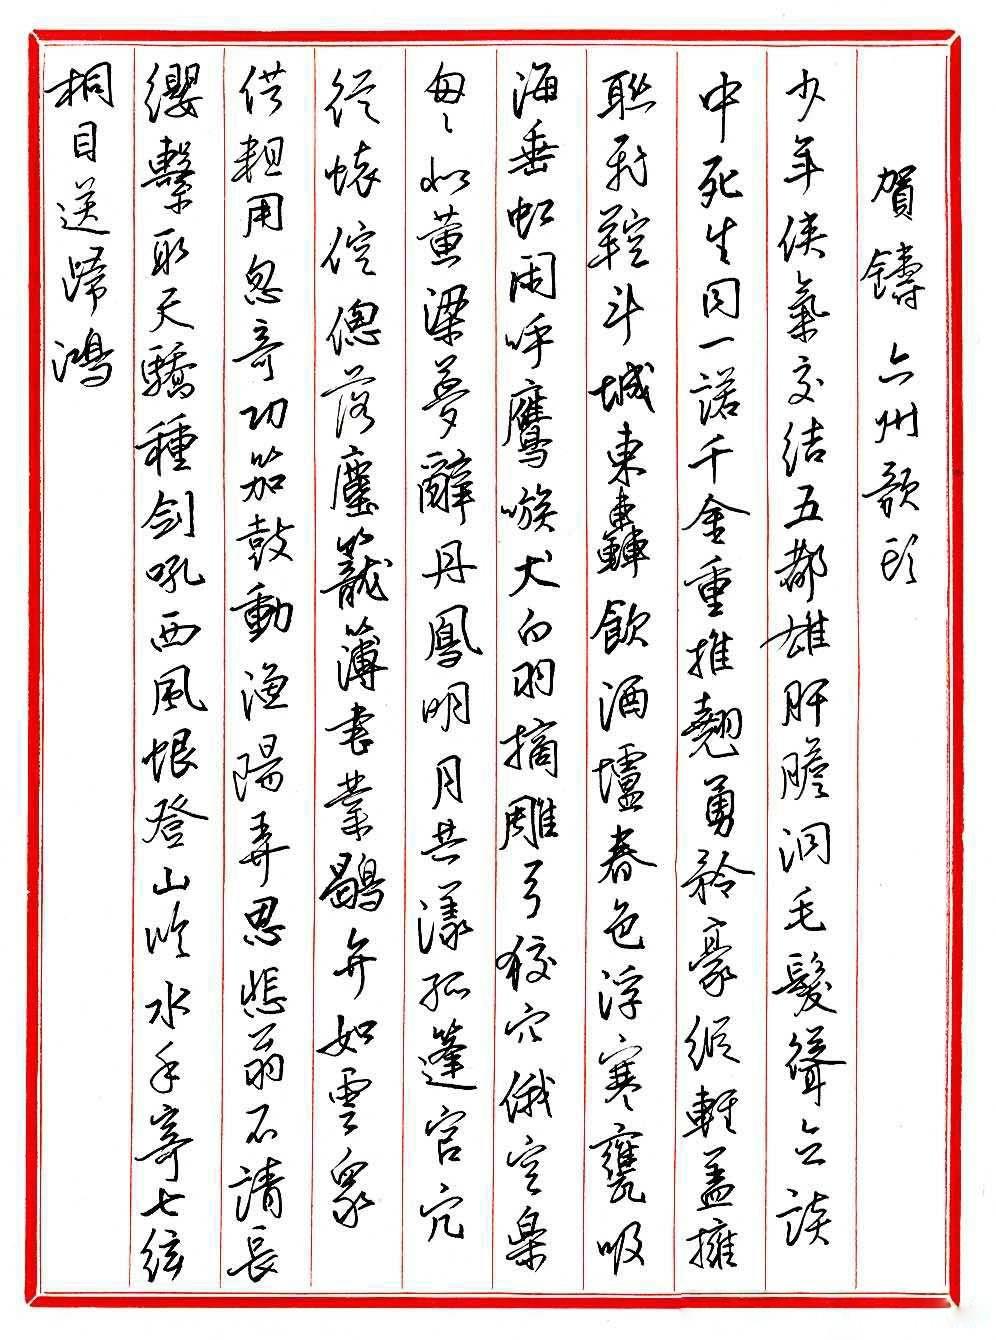 賀鑄 六州歌頭
少年俠氣交結五都雄肝膽洞毛髮聳立談
中死生同一諾千金重推翹勇矜豪縱輕蓋擁
聯飛鞚斗城東轟飲酒壚春色浮寒甕吸
海垂虹閑呼鷹嗾犬白羽摘雕弓狡穴俄空樂
匆匆似黄粱夢辭丹鳳明月共漾孤蓬官冗
從懷倥傯落塵籠簿書叢鶡弁如雲衆
供粗用忽奇功笳鼓動漁陽弄思悲翁不請長
纓繫取天驕種劍吼西風恨登山臨水手寄七絃
桐目送歸鴻